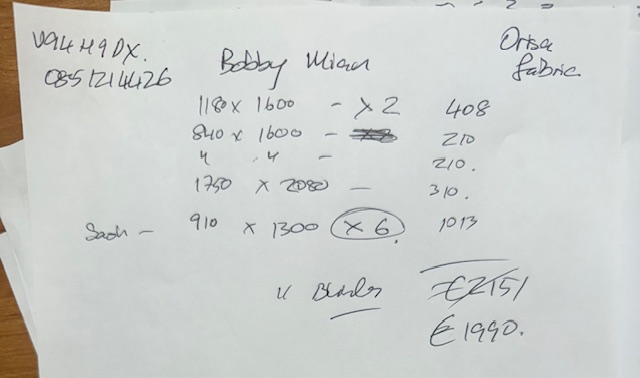 V94 H9DX.
0851214426
Bobby
Orisa
fabric
1180 x 1600 - x 2 408
840 x 1600 - 210
" " - 210.
1750 x 2080 - 310.
Sash - 910 x 1300 x 6. 1013
11 Blinds €2151
€1990.